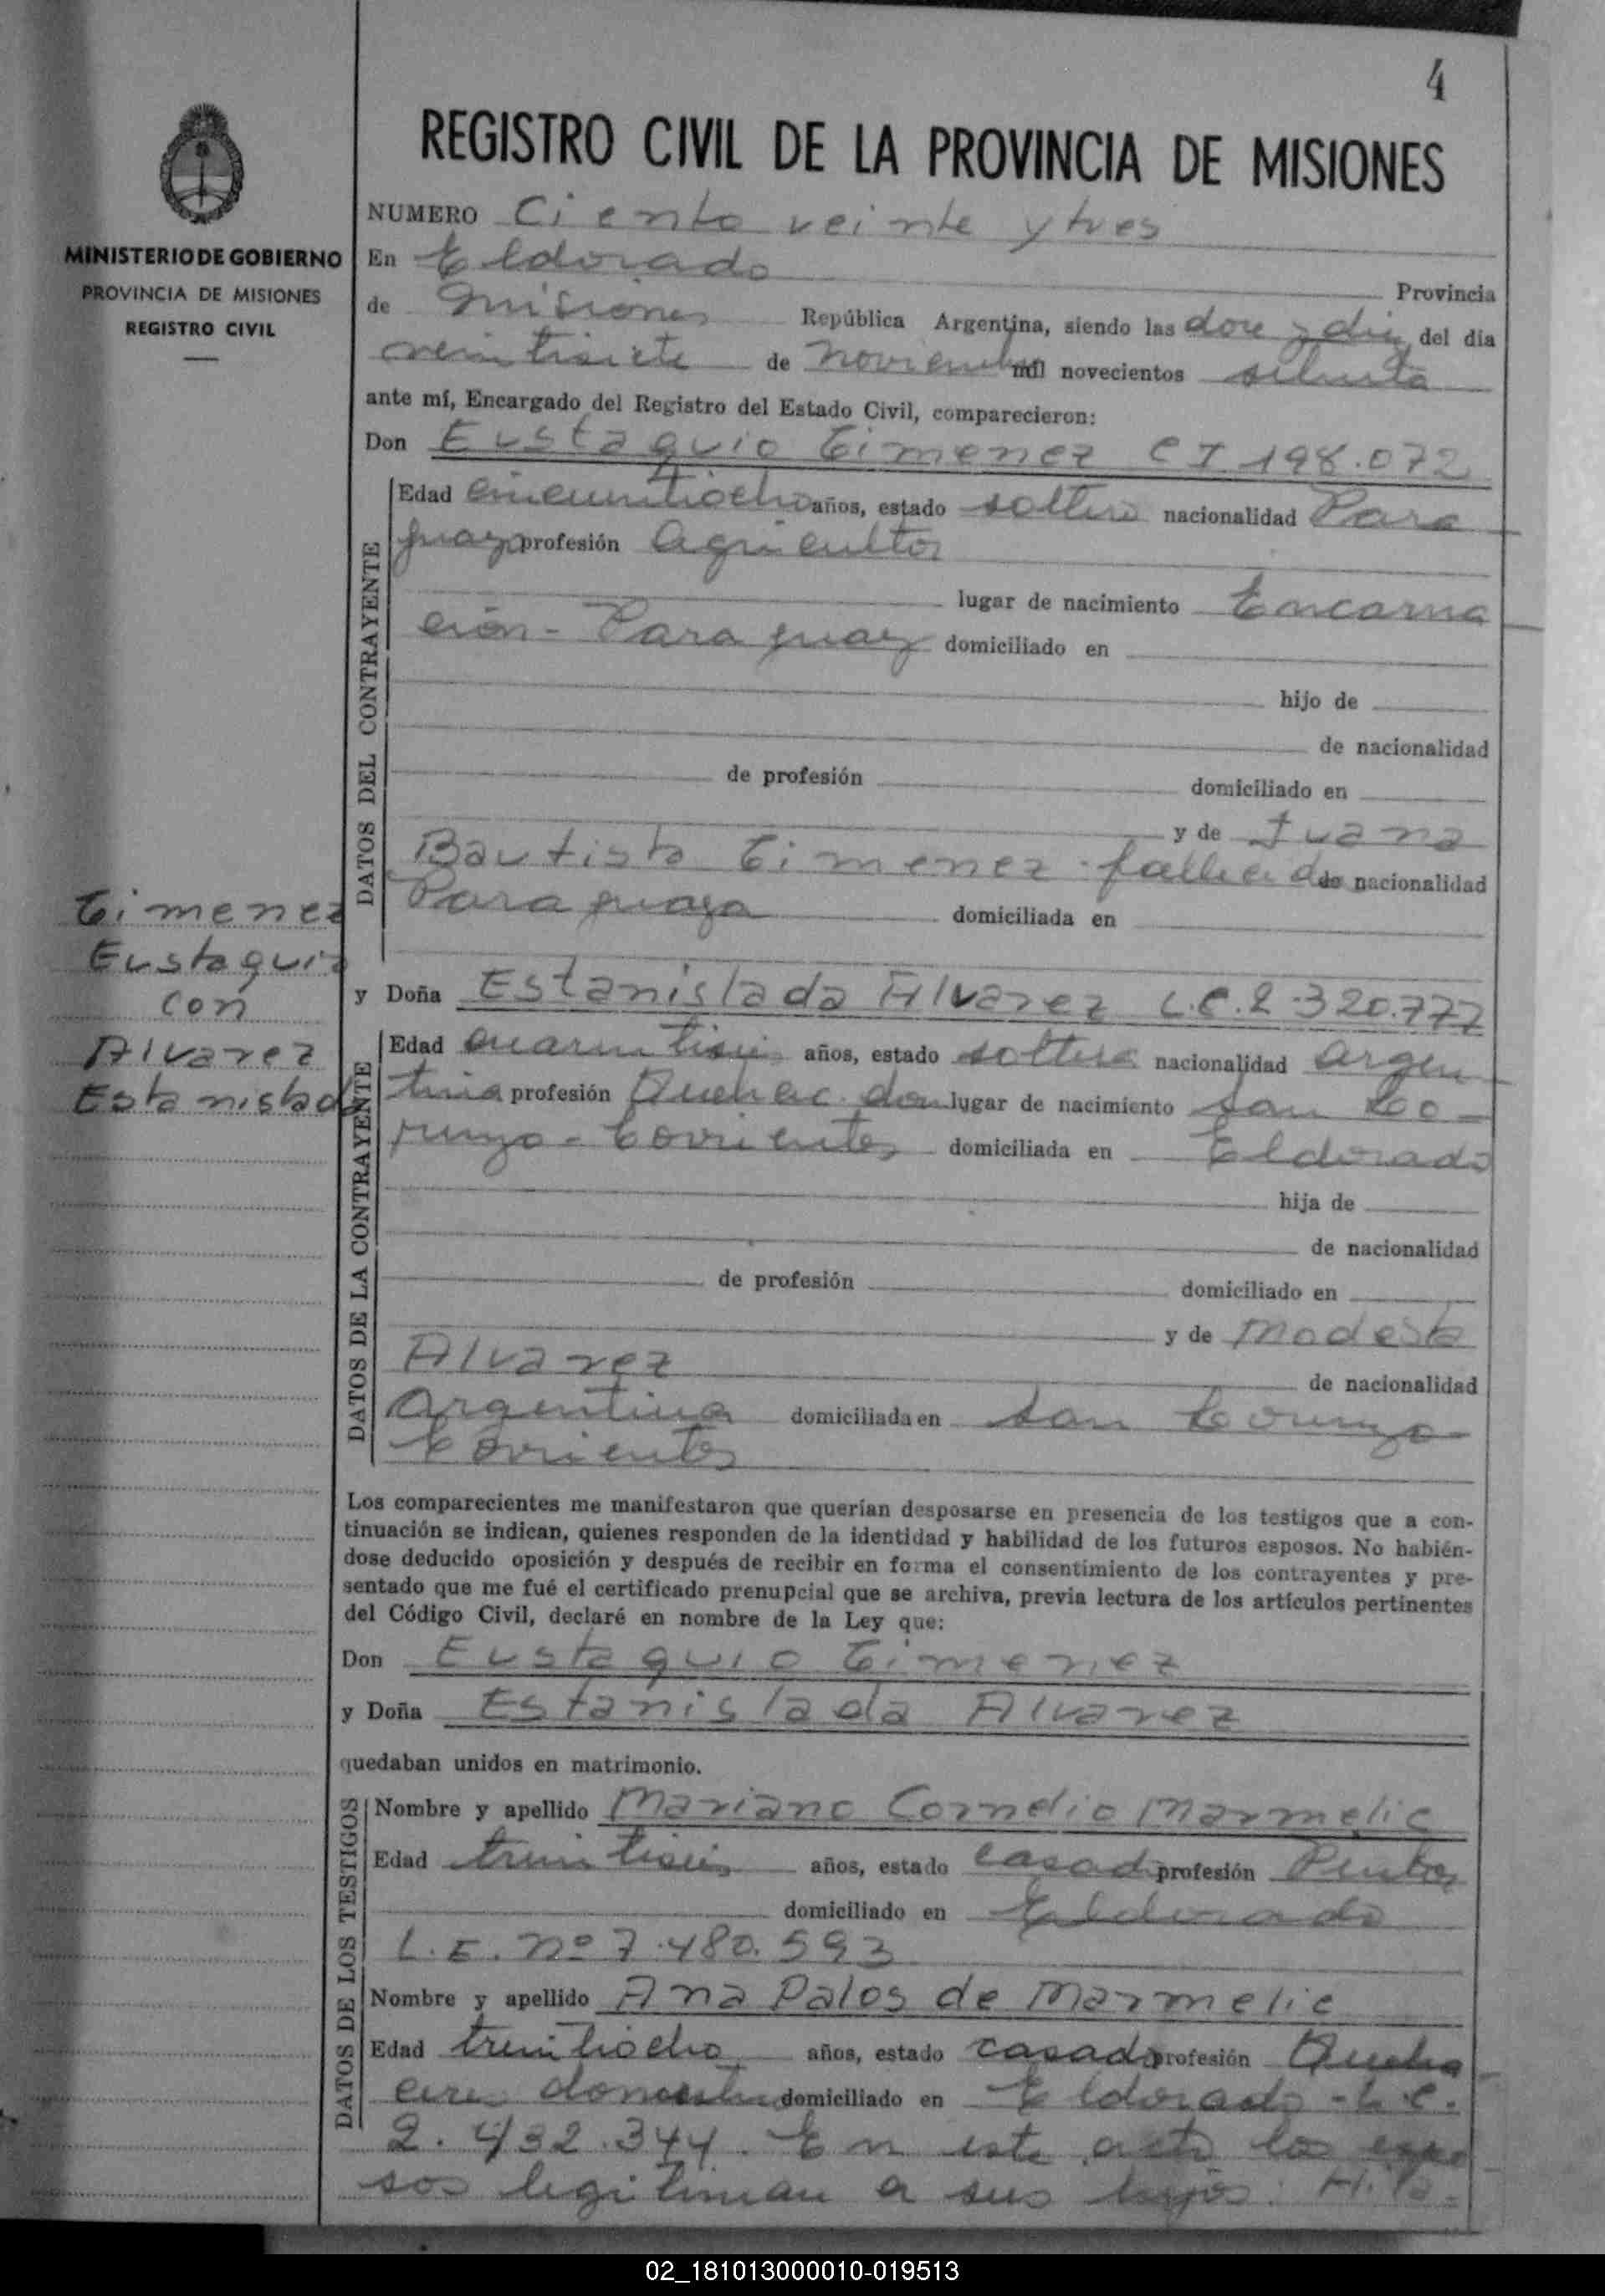 4
REGISTRO CIVIL DE LA PROVINCIA DE MISIONES
MINISTERIO DE GOBIERNO
PROVINCIA DE MISIONES
REGISTRO CIVIL
NUMERO Ciento veinte y tres
En Eldorado Provincia
de Misiones República Argentina, siendo las doce y diez del día
veintisiete de noviembre mil novecientos setenta
ante mí, Encargado del Registro del Estado Civil, comparecieron:
Don Eustaquio Gimenez C I 198.072
Edad cincuentiocho años, estado soltero nacionalidad Para
guaya profesión Agricultor
lugar de nacimiento Encarna
ción - Paraguay domiciliado en
hijo de
de nacionalidad
de profesión domiciliado en
y de Juana
Bautista Gimenez - fallecida de nacionalidad
Paraguaya domiciliada en
Gimenez
Eustaquio
con
Alvarez
Estanislada
y Doña Estanislada Alvarez L.C. 2.320.777
Edad cuarentiseis años, estado soltera nacionalidad argen
tina profesión Quehac. dom. lugar de nacimiento San Lo-
renzo - Corrientes domiciliada en Eldorado
hija de
de nacionalidad
de profesión domiciliado en
y de Modesta
Alvarez de nacionalidad
Argentina domiciliada en San Lorenzo
Corrientes
Los comparecientes me manifestaron que querían desposarse en presencia de los testigos que a con-
tinuación se indican, quienes responden de la identidad y habilidad de los futuros esposos. No habién-
dose deducido oposición y después de recibir en forma el consentimiento de los contrayentes y pre-
sentado que me fué el certificado prenupcial que se archiva, previa lectura de los artículos pertinentes
del Código Civil, declaré en nombre de la Ley que:
Don Eustaquio Gimenez
y Doña Estanislada Alvarez
quedaban unidos en matrimonio.
Nombre y apellido Mariano Cornelio Marmelic
Edad treintiseis años, estado casado profesión Pintor
domiciliado en Eldorado
L.E. Nº 7.480.593
Nombre y apellido Ana Palos de Marmelic
Edad treintiocho años, estado casada profesión Queha
ceres domesticos domiciliado en Eldorado - L.C.
2.432.344. En este acto los espo
sos legitiman a sus hijos: Hila-
DATOS DEL CONTRAYENTE
DATOS DE LA CONTRAYENTE
DATOS DE LOS TESTIGOS
02_181013000010-019513